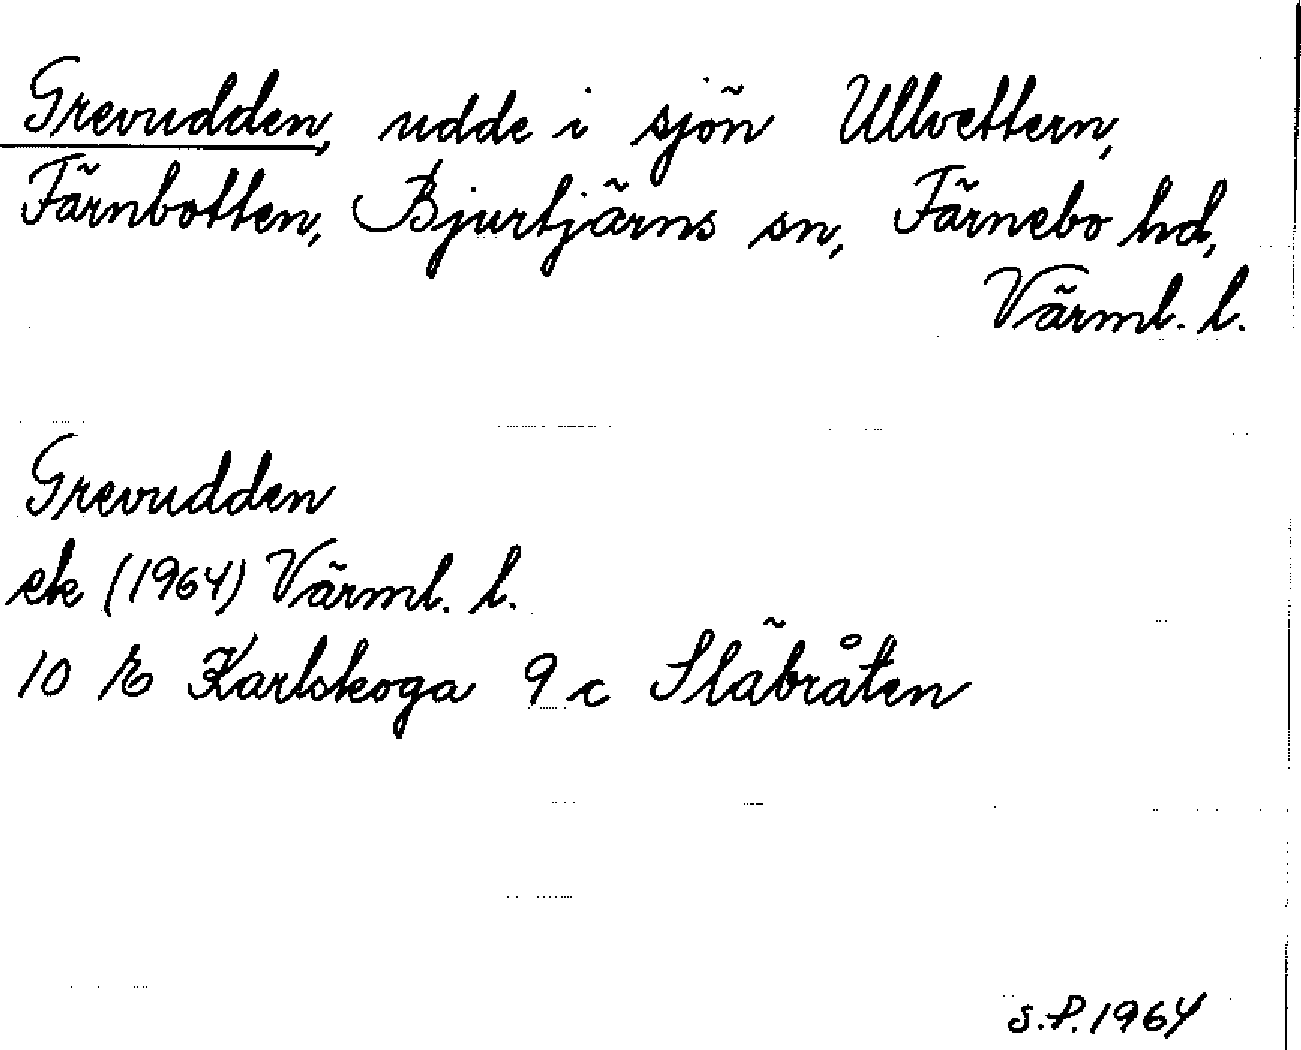 Grevudden, udde i sjön Ullvettern,
Färnbotten, Bjurtjärns sn, Färnebo hd,
Värml. l.
Grevudden
ek (1964) Värml. l.
10 E Karlskoga 9 c Släbråten
S.P. 1964